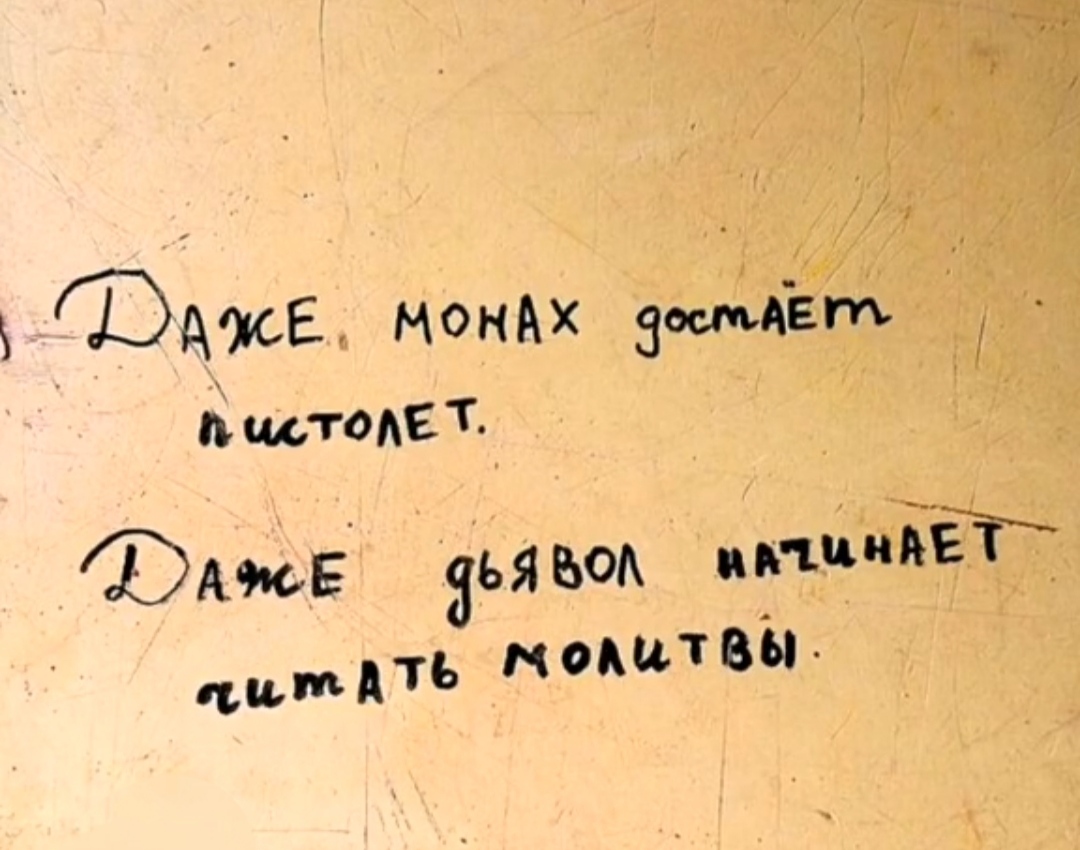 Даже монах достаёт
пистолет.
Даже дьявол начинает
читать молитвы.